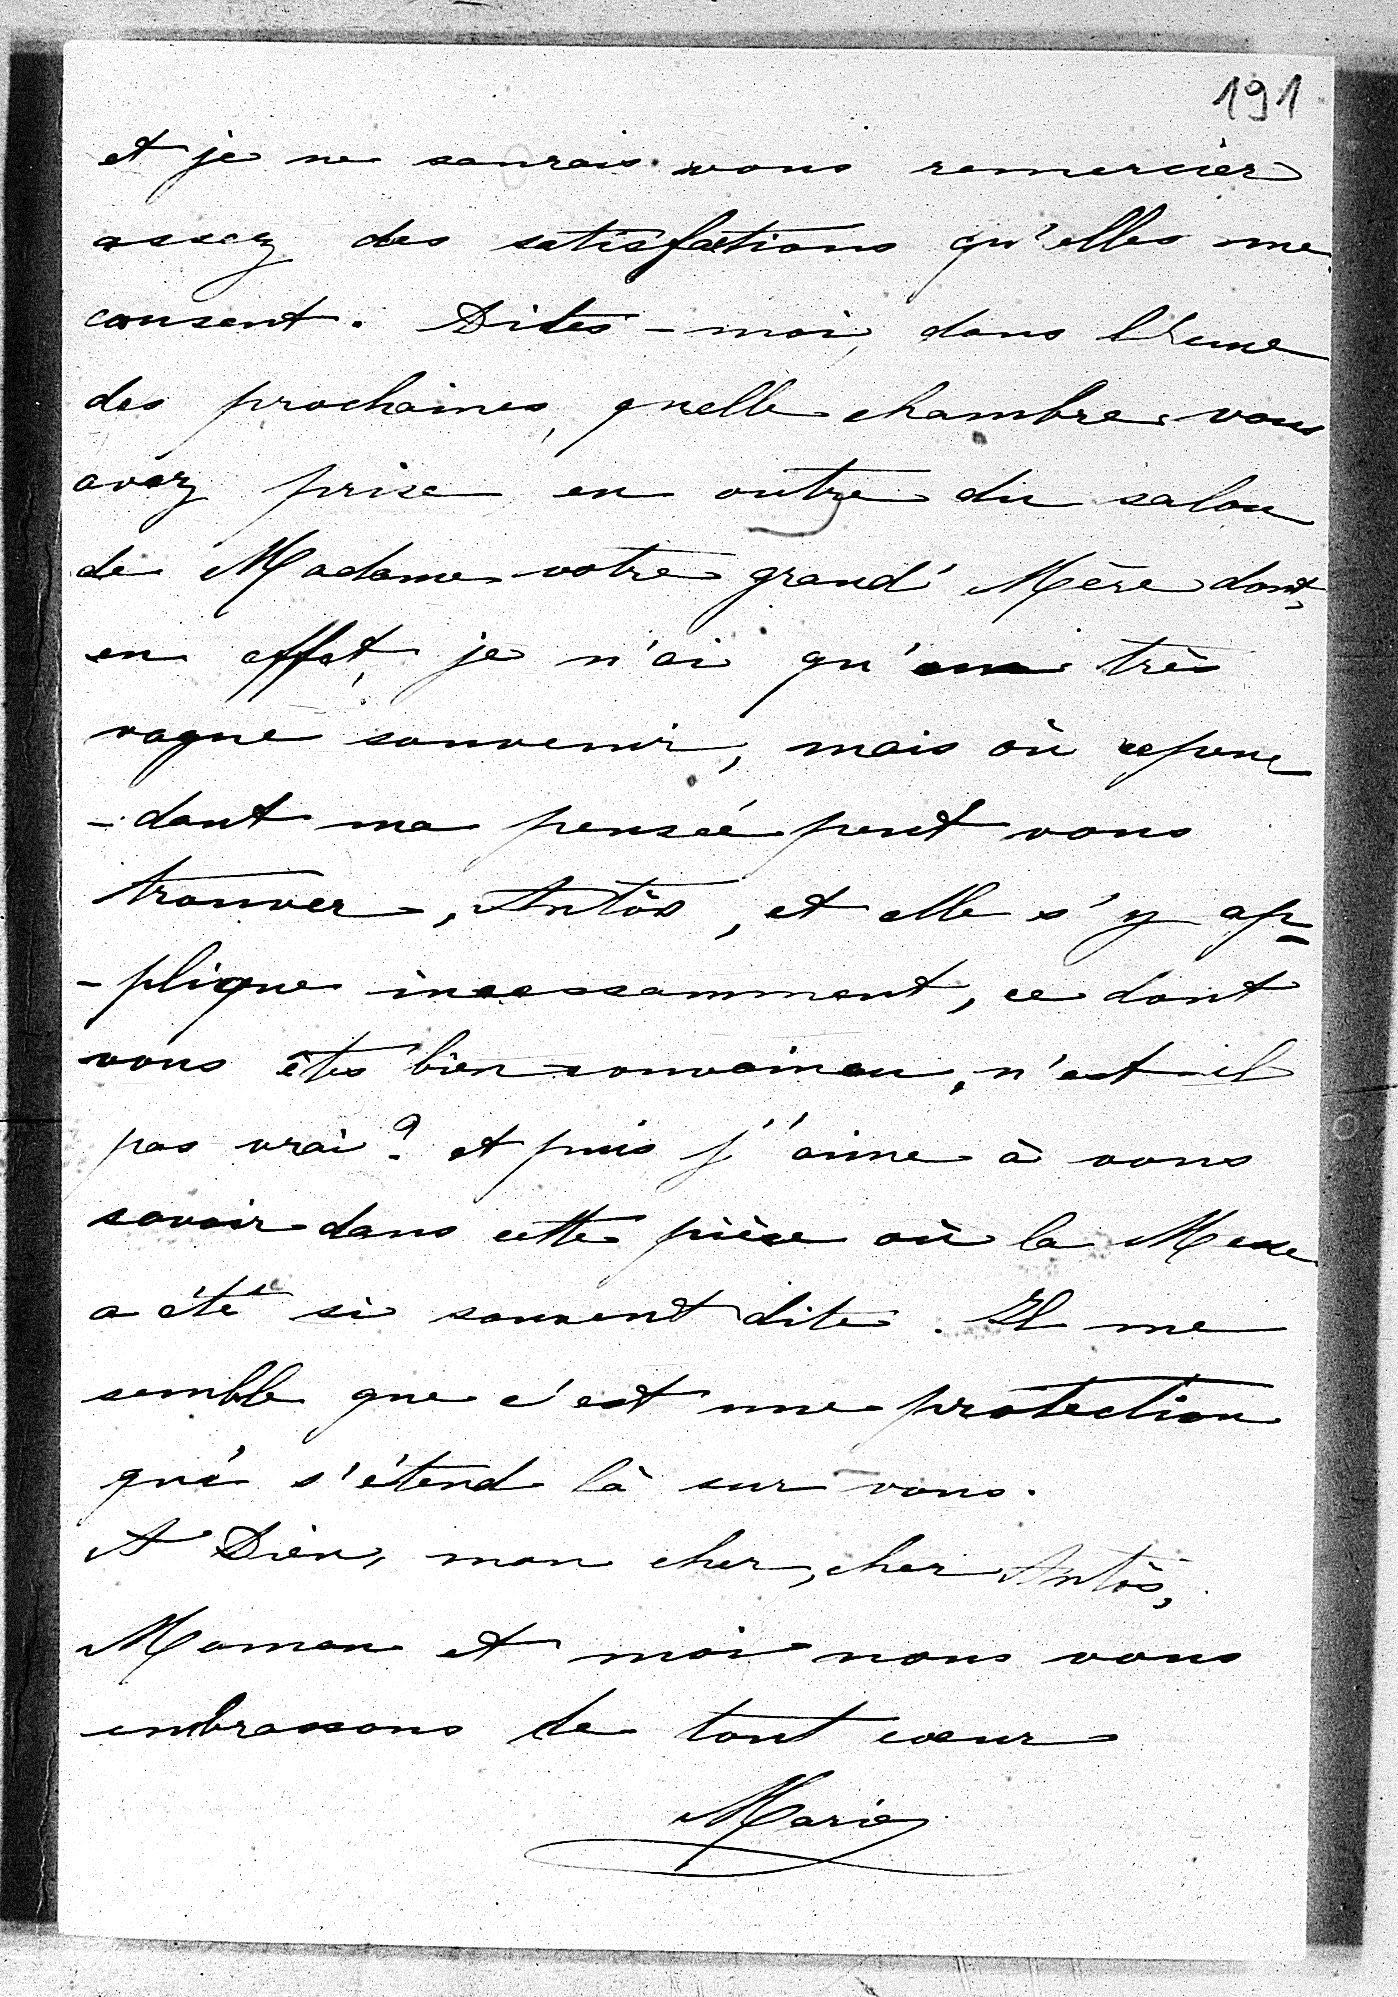 191
et je ne saurais vous remercier
assez des satisfactions qu'elles me
causent. Dites-moi, dans l'une
des prochaines, quelle chambre vous
avez prise en outre du salon
de Madame votre grand' Mère dont,
en effet, je n'ai qu'un très
vague souvenir, mais où cepen
-dant ma pensée peut vous
trouver, Antôs, et elle s'y ap-
-plique incessamment, ce dont
vous êtes bien convaincu, n'est-il
pas vrai? et puis j'aime à vous
savoir dans cette pièce où la Messe
a été si souvent dite. Il me
semble que c'est une protection
qui s'étend là sur vous.
A Dieu, mon cher, cher Antôs,
Maman et moi nous vous
embrassons de tout cœur
Marie